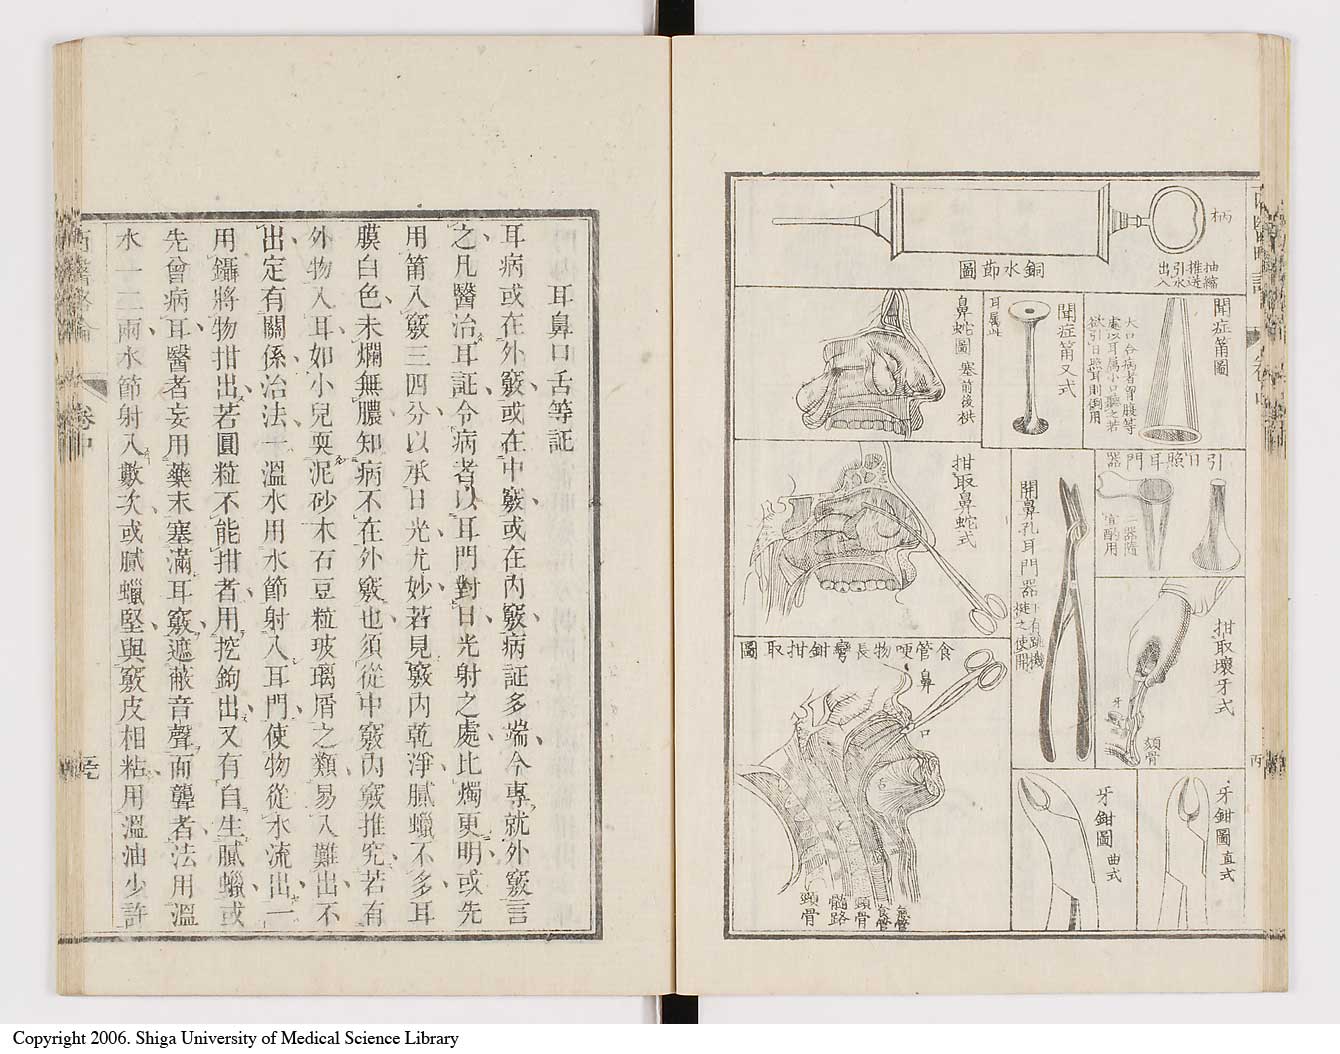 柄
抽縮
推送
引水
出入
圖節水銅
聞症筩圖
大口合病者胷膛等
處以耳属小口聽之若
欲引日照耳則倒用
聞症筩又式
耳属此
鼻蛇圖
塞前後栱
引日照耳門器
二器隨
宜酌用
拑取鼻蛇式
開鼻孔耳門器
下有跳機
揵之使開
拑取壞牙式
牙
頦骨
圖取拑鉗彎長物哽管食
鼻
口
氣管
食管
頸骨
髓路
頸骨
牙鉗圖
直式
牙鉗圖
曲式
丙
耳鼻口舌等証
耳病或在外竅或在中竅或在內竅病証多端今專就外竅言
之凡醫治耳証令病者以耳門對日光射之處比燭更明或先
用筩入竅三四分以承日光尤妙若見竅内乾淨膩蠟不多耳
膜白色未爛無膿知病不在外竅也須從中竅內竅推究若有
外物入耳如小兒耍泥砂木石豆粒玻璃屑之類易入難出不
出定有關係治法一溫水用水節射入耳門使物從水流出一
用鑷將物拑出若圓粒不能拑者用挖鉤出又有自生膩蠟或
先曾病耳醫者妄用藥末塞滿耳竅遮蔽音聲而聾者法用溫
水一二兩水節射入數次或膩蠟堅與竅皮相粘用溫油少許
西醫略論
卷中
Copyright 2006. Shiga University of Medical Science Library